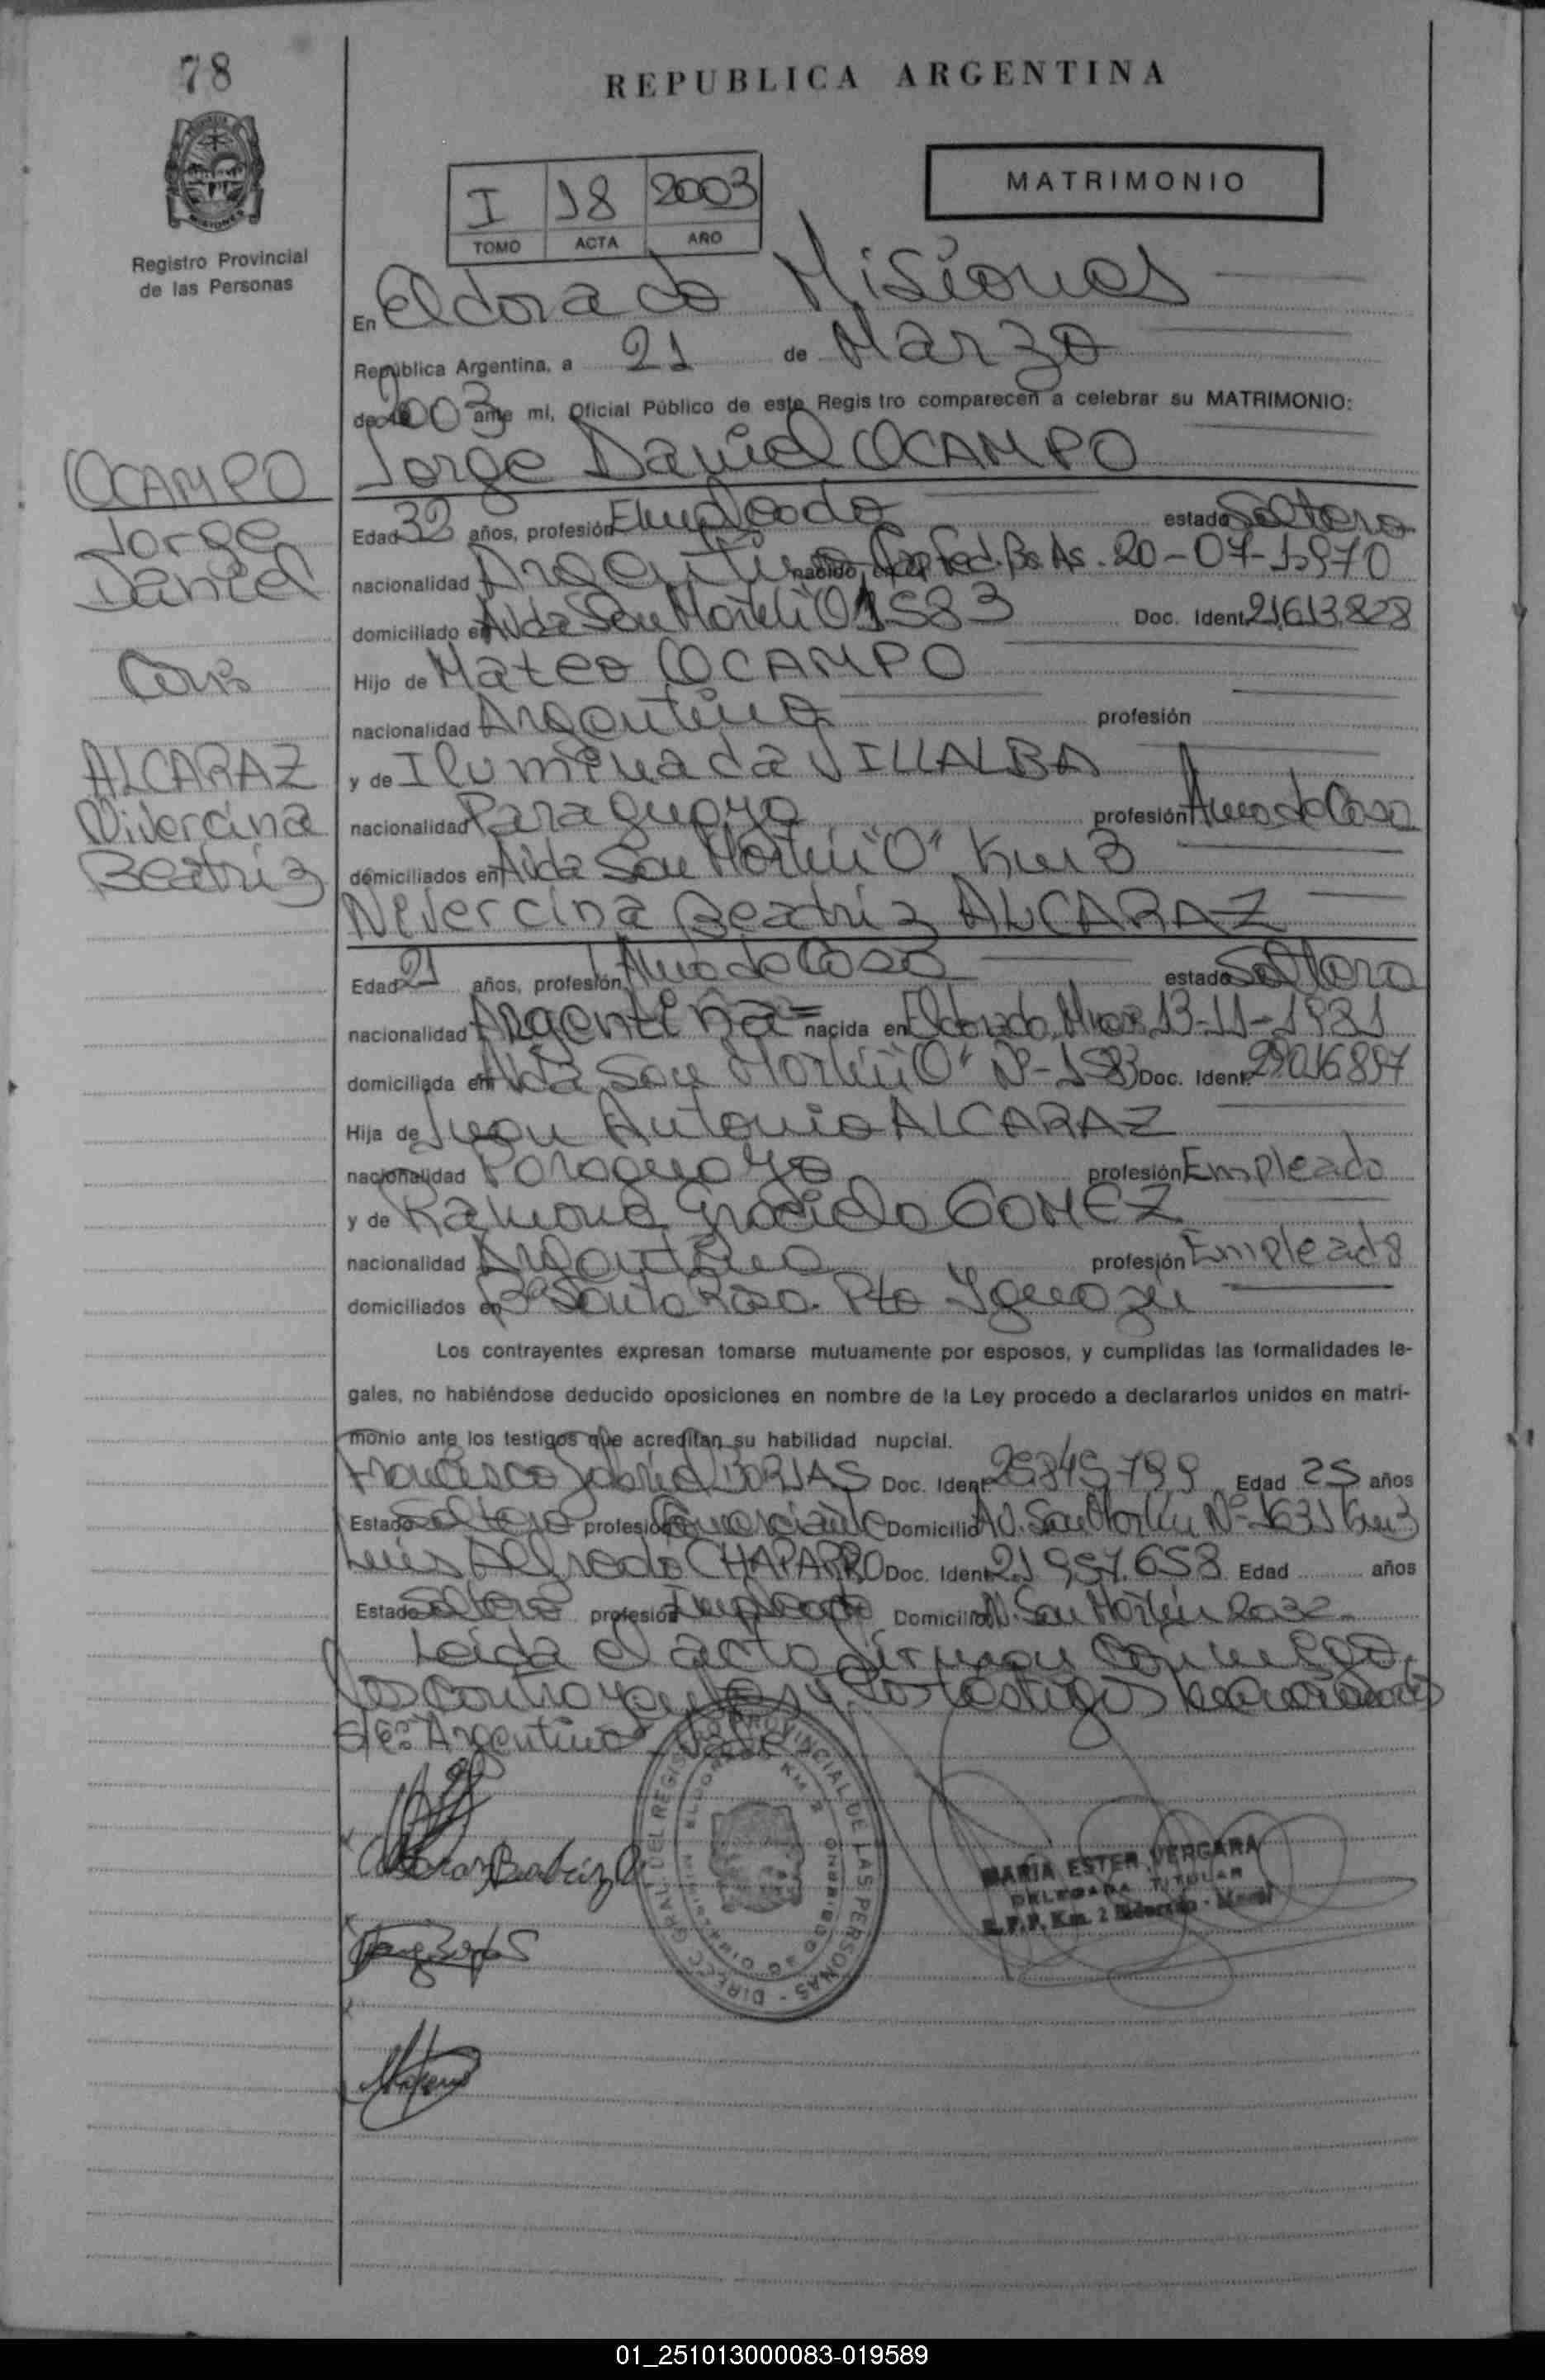 78
REPUBLICA ARGENTINA
MATRIMONIO
I 18 2003
TOMO ACTA AÑO
Registro Provincial
de las Personas
En Eldorado Misiones
República Argentina, a 21 de Marzo
de 2003 ante mi, Oficial Público de este Regis tro comparecen a celebrar su MATRIMONIO:
Jorge Daniel OCAMPO
OCAMPO
Jorge
Daniel
Con
ALCARAZ
Nivercina
Beatriz
Edad 32 años, profesión Empleado estado Soltero
nacionalidad Argentino nacido en Cap Fed. Bs As. 20-07-1970
domiciliado en Avda San Martin "O" 1583 Doc. Ident. 21.613.828
Hijo de Mateo OCAMPO
nacionalidad Argentino profesión
y de Iluminada VILLALBA
nacionalidad Paraguaya profesión Ama de Casa
domiciliados en Avda San Martin "O" Km 3
Nivercina Beatriz ALCARAZ
Edad 21 años, profesión Ama de Casa estado Soltera
nacionalidad Argentina = nacida en Eldorado, Mnes 13-11-1981
domiciliada en Avda San Martin "O" Nº 1583 Doc. Ident. 29.016.897
Hija de Juan Antonio ALCARAZ
nacionalidad Paraguayo profesión Empleado
y de Ramona Graciela GOMEZ
nacionalidad Argentina profesión Empleada
domiciliados en Bº Santa Rosa. Pto Iguazu
Los contrayentes expresan tomarse mutuamente por esposos, y cumplidas las formalidades le-
gales, no habiéndose deducido oposiciones en nombre de la Ley procedo a declararlos unidos en matri-
monio ante los testigos que acreditan su habilidad nupcial.
Francisco Gabriel BORJAS Doc. Ident. Edad 25 años
Estado Soltero profesión Comerciante Domicilio Av. San Martin Nº 1631 Km3
Luis Alfredo CHAPARRO Doc. Ident. 21.957.658 Edad años
Estado Soltero profesión Empleado Domicilio Av. San Martin 2032
Leida el acta firman conmigo
los contrayentes y los testigos mencionados
s/e: Argentina Vale
DIRECC. GRAL. DEL REGISTRO PROVINCIAL DE LAS PERSONAS
MARIA ESTER VERGARA
DELEGADA TITULAR
R.P.P. Km. 2 Eldorado - Mnes
01_251013000083-019589